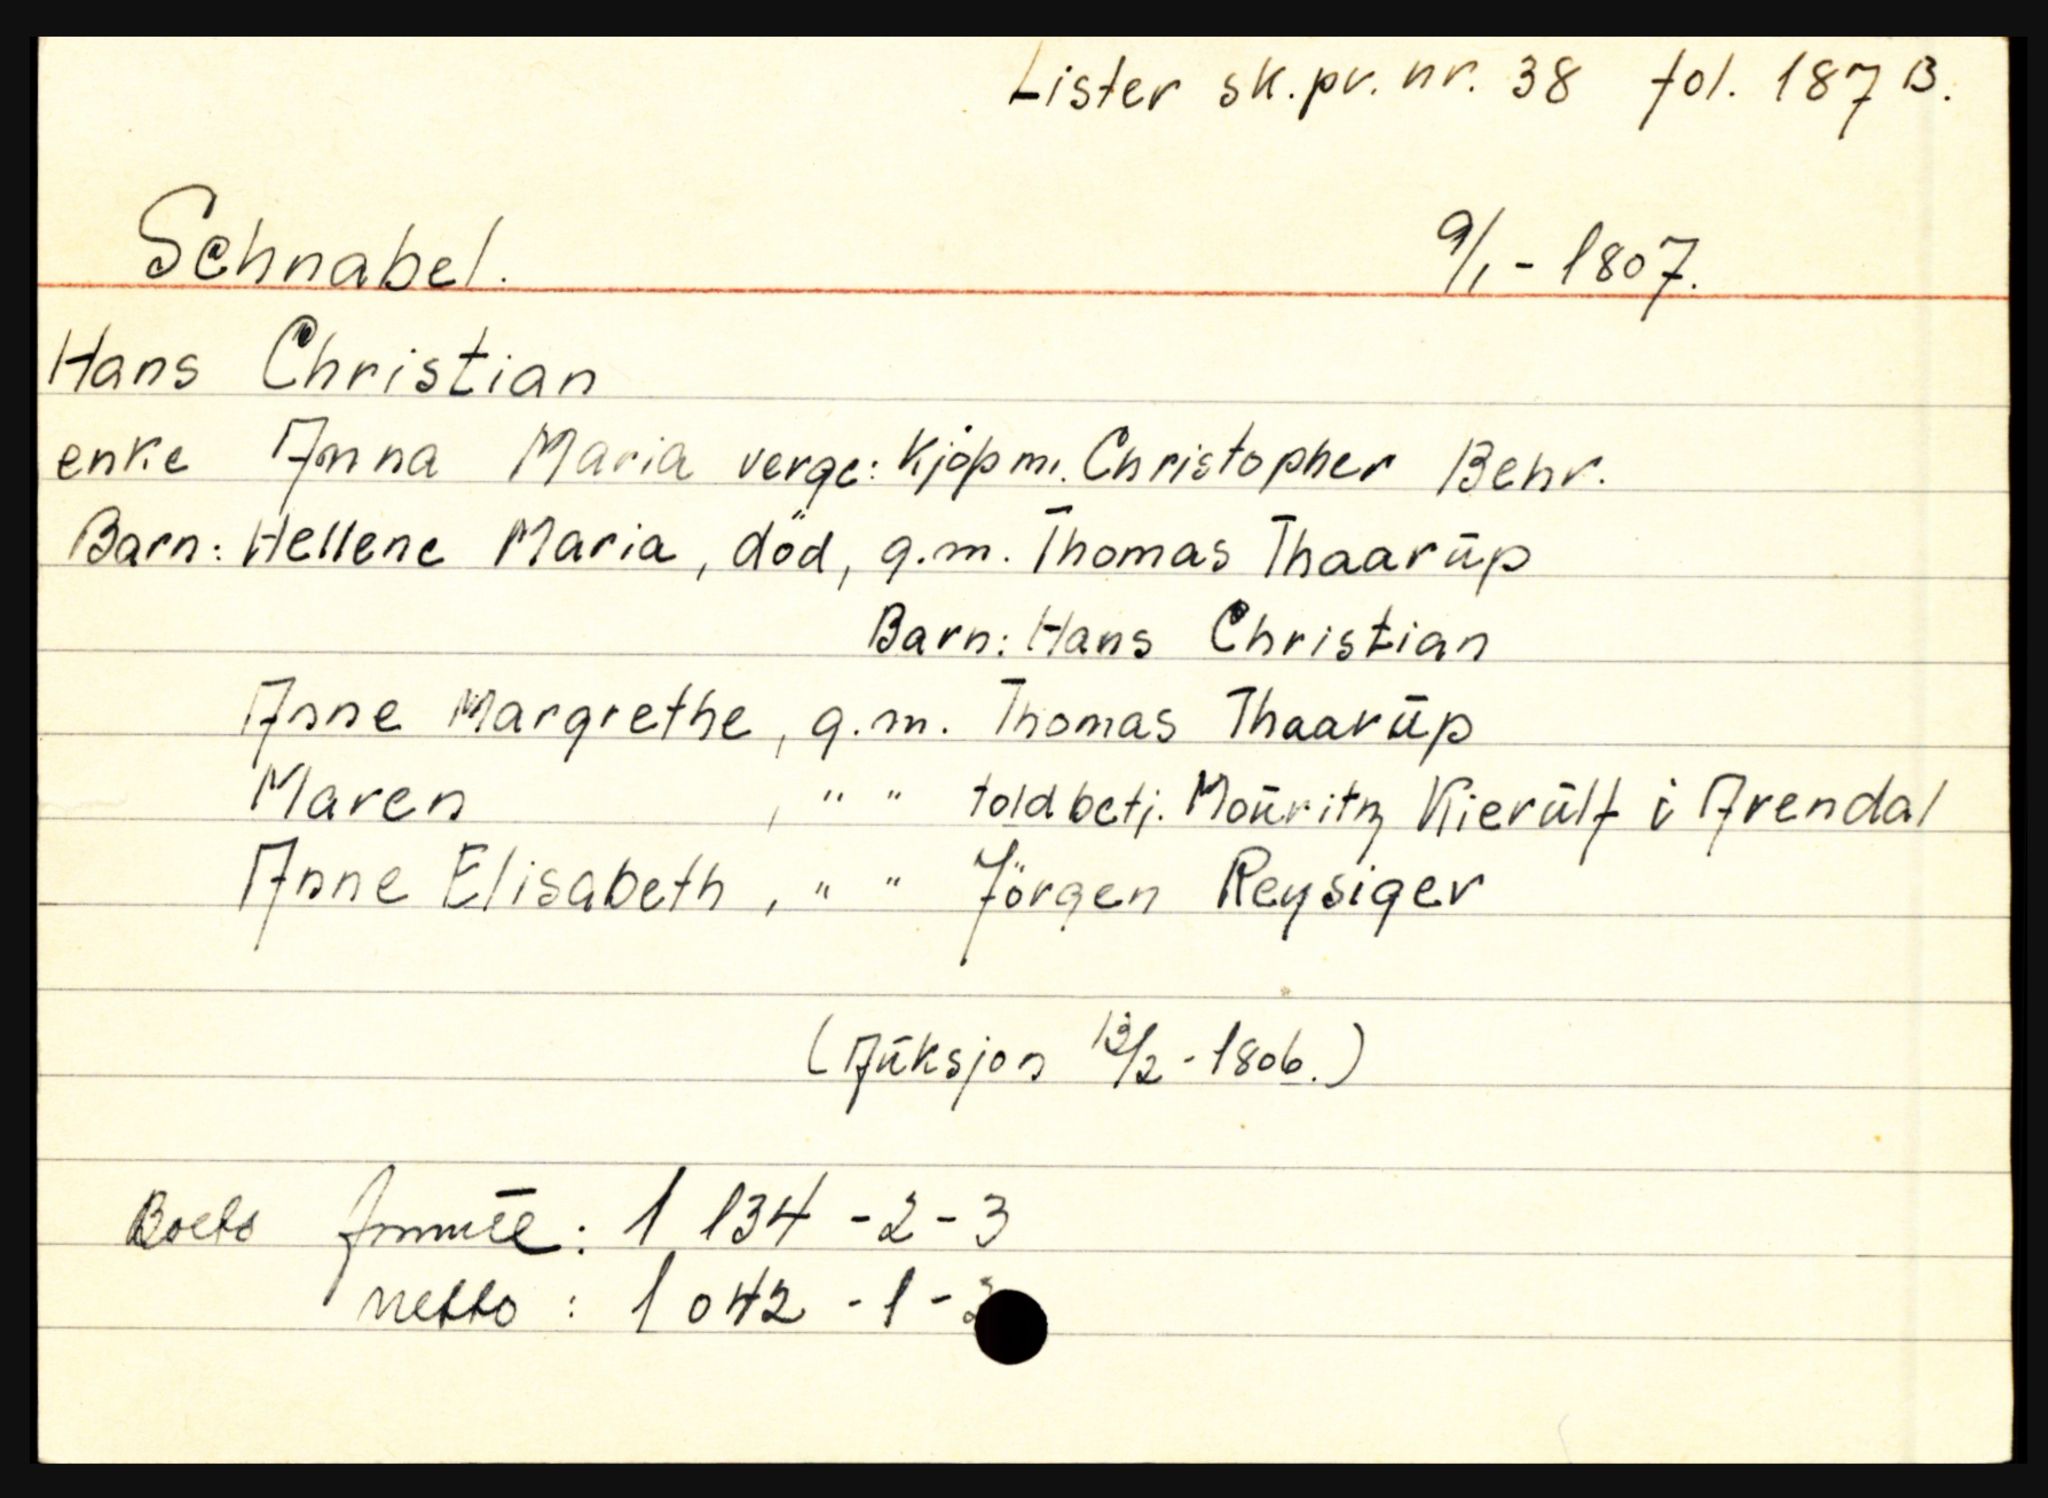 Lister sk.pr. nr. 38 fol. 187 B.
Schnabel. 9/1 - 1807.
Hans Christian
enke Anna Maria verge: kjöpm. Christopher Behr.
Barn: Hellene Maria, död, g.m. Thomas Thaarūp
Barn: Hans Christian
Anne Margrethe, g.m. Thomas Thaarūp
Maren , " " toldbetj. Moūritz Kierūlf i Arendal
Anne Elisabeth, " " Jörgen Reysiger
(Aūksjon 13/2 - 1806.)
Boets : 1 134 - 2 - 3
netto : 1 042 - 1 -